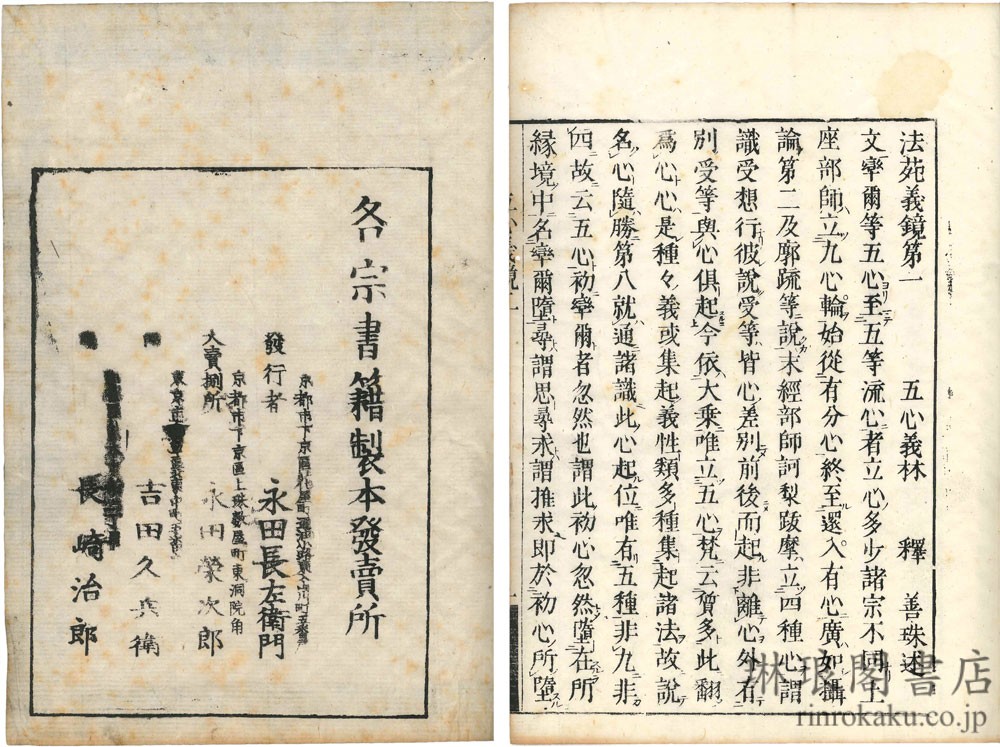 法苑義鏡第一　五心義林　釋　善珠述
文率爾等五心至五等流心者立心多少諸宗不同上
座部師立九心輪始從有分心終至還入有心廣如攝
論第二及廓疏等說末經部師訶梨跋摩立四種心謂
識受想行彼說受等皆心差別前後而起非離心外有
別受等與心俱起今依大乘唯立五心梵云質多此翻
爲心心是種々義或集起義性類多種集起諸法故說
名心隨勝第八就通諸識此心起位唯有五種非九非
四故云五心初率爾者忽然也謂此初心忽然墮在所
緣境中名率爾墮尋謂思尋求謂推求即於初心所墮
各宗書籍製本發賣所
京都市下京區
發行者　永田長左衛門
京都市下京區上珠數屋町東洞院角
大賣捌所　永田榮次郎
東京
吉田久兵衛
長崎治郎
琳琅閣書店
rinrokaku.co.jp